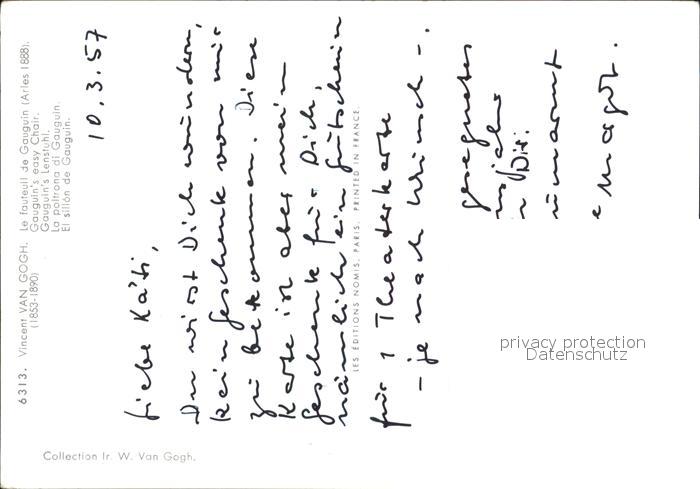 6313. Vincent VAN GOGH. Le fauteuil de Gauguin (Arles 1888).
(1853-1890) Gauguin's easy Chair.
Gauguin's Lenstuhl.
La poltrona di Gauguin.
El sillón de Gauguin.
10.3.57
Liebe Käti,
Du wirst Dich wundern,
kein Geschenk von mir
zu bekommen. Diese
Karte ist aber mein
Geschenk für Dich,
nämlich ein Gutschein
LES ÉDITIONS NOMIS, PARIS. PRINTED IN FRANCE.
für 1 Theaterkarte
– je nach Wunsch –.
gesegnetes
Dir.
umarmt
Margot.
privacy protection
Datenschutz
Collection Ir. W. Van Gogh.